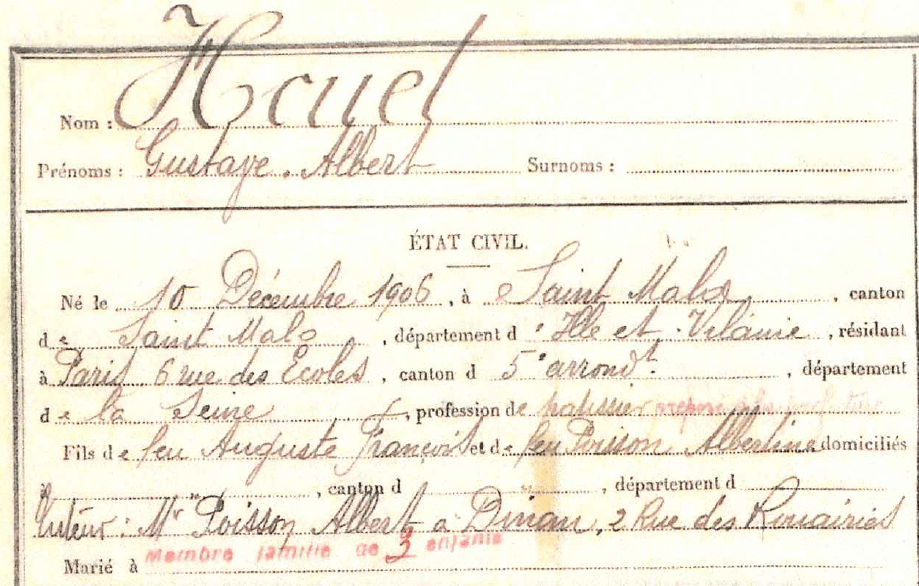 Nom : Houel
Prénoms : Gustave. Albert Surnoms :
ÉTAT CIVIL.
Né le 10 Décembre 1906, à Saint Malo, canton
de Saint Malo, département d'Ille et Vilaine, résidant
à Paris 6 rue des Ecoles, canton d 5e arrondt., département
de la Seine, profession de
Fils de feu Auguste François et de feu Poisson Albertine domiciliés
, canton d , département d
Tuteur : Mr Poisson Albert à Dinan, 2 Rue des Rouairies
Marié à Membre famille de 3 enfants